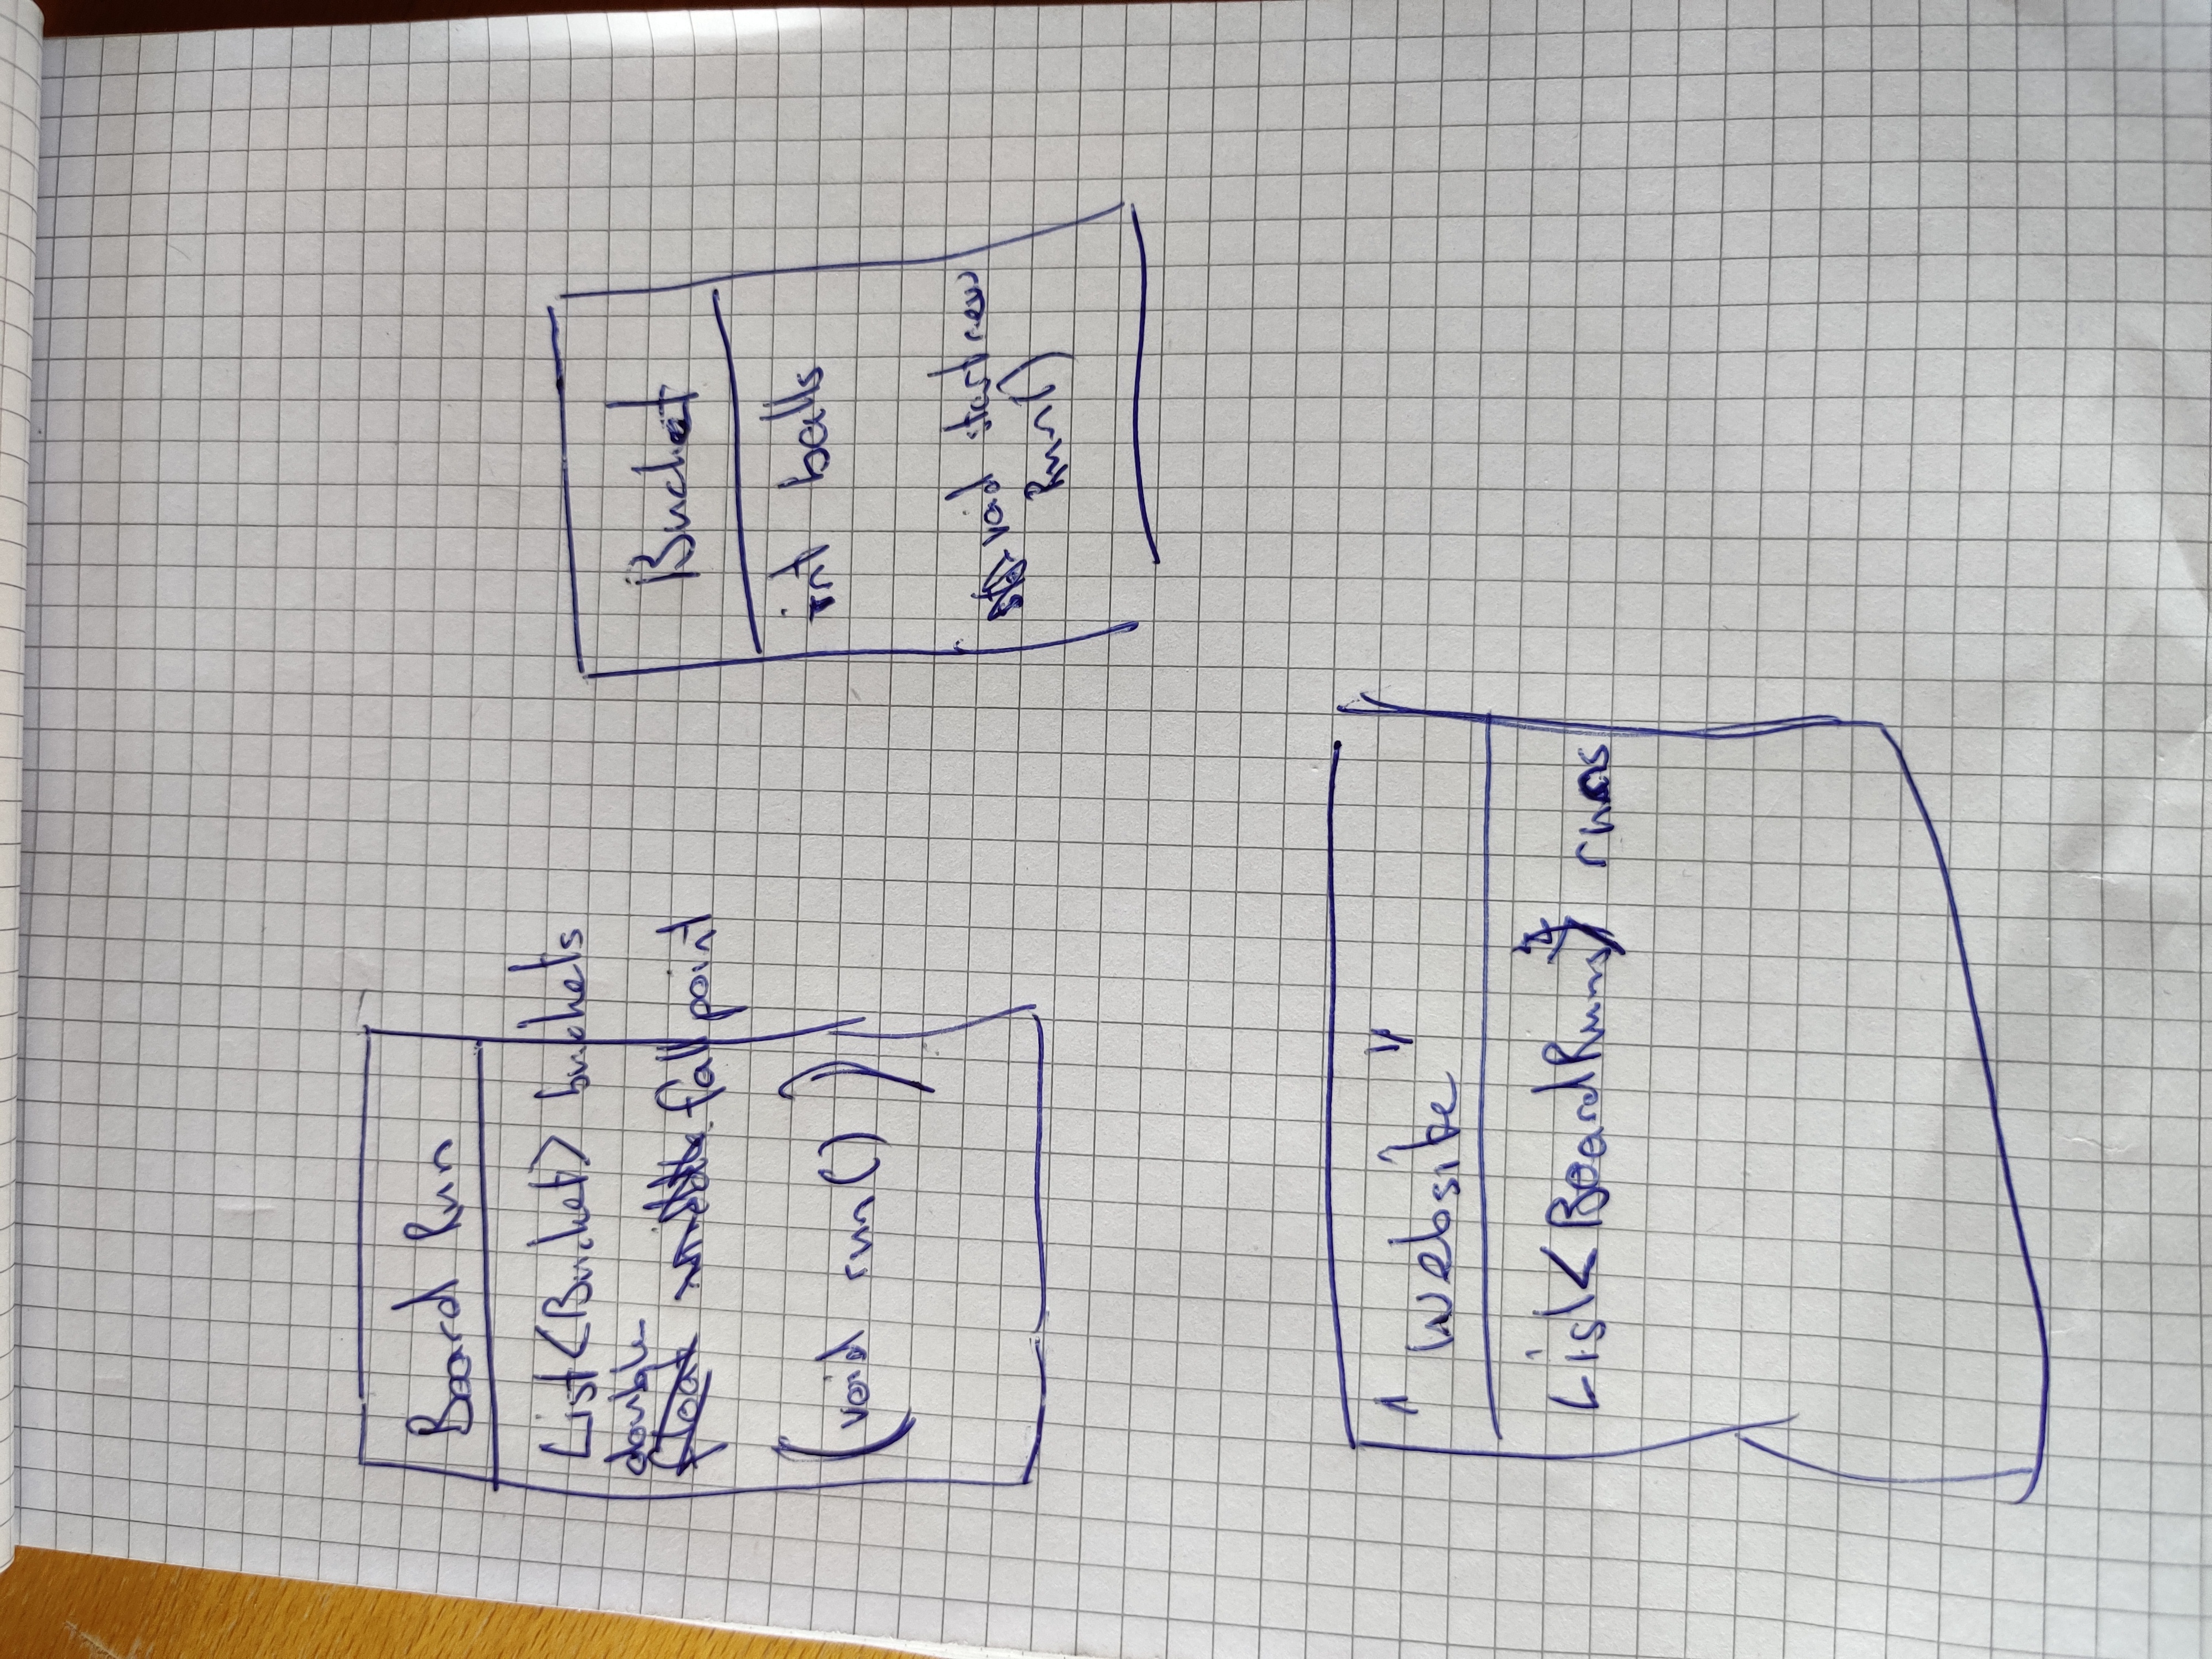 Board Run
List<Bucket> buckets
double
float middle fallpoint
(void run())
Bucket
int balls
void startnew
Run()
"Website"
List<BoardRuns> runs